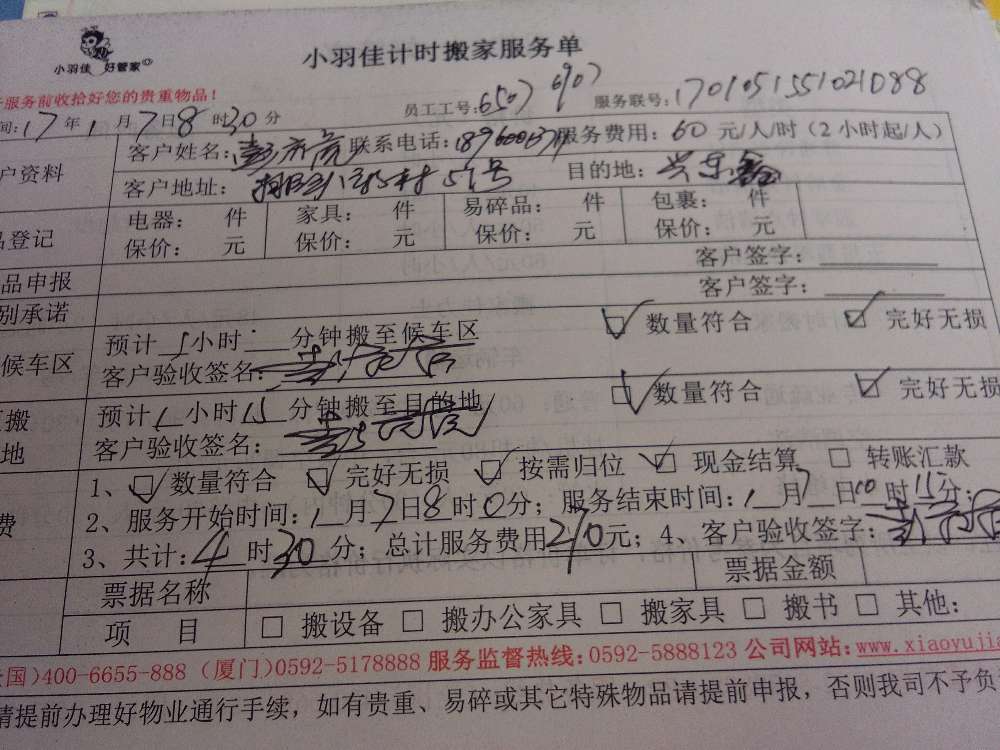 小羽佳 好管家
小羽佳计时搬家服务单
服务前收拾好您的贵重物品！
员工工号：6507 6907 服务联号：170105155102 1088
间：17年1月7日8时30分
户资料 客户姓名： 联系电话： 服务费用：60元/人/时（2小时起/人）
客户地址： 57号 目的地：
品登记 电器： 件 家具： 件 易碎品： 件 包裹： 件
保价： 元 保价： 元 保价： 元 保价： 元
品申报 客户签字：
别承诺 客户签字：
候车区 预计 小时 分钟搬至候车区 数量符合 完好无损
客户验收签名：
搬 预计1小时15分钟搬至目的地 数量符合 完好无损
地 客户验收签名：
1、 数量符合 完好无损 按需归位 现金结算 转账汇款
费 2、服务开始时间：1月7日8时0分；服务结束时间：1月7日10时15分；
3、共计：4时30分；总计服务费用270元；4、客户验收签字：
票据名称 票据金额
项 目 搬设备 搬办公家具 搬家具 搬书 其他：
国)400-6655-888（厦门)0592-5178888 服务监督热线：0592-5888123 公司网站：www.xiaoyujia
请提前办理好物业通行手续，如有贵重、易碎或其它特殊物品请提前申报，否则我司不予负